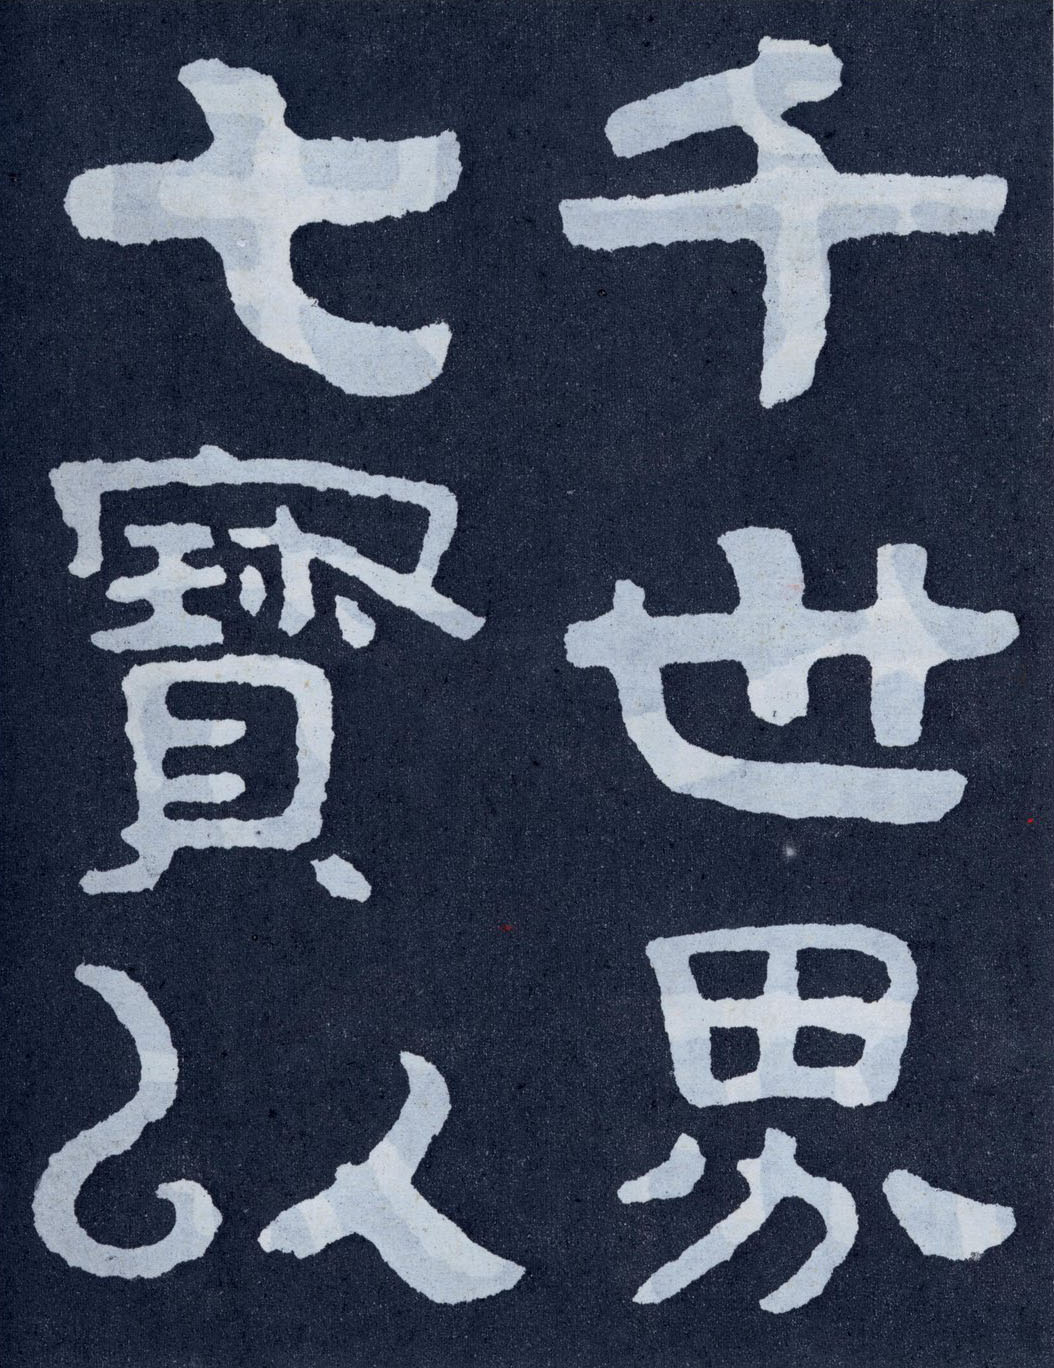 千世界
七寶以